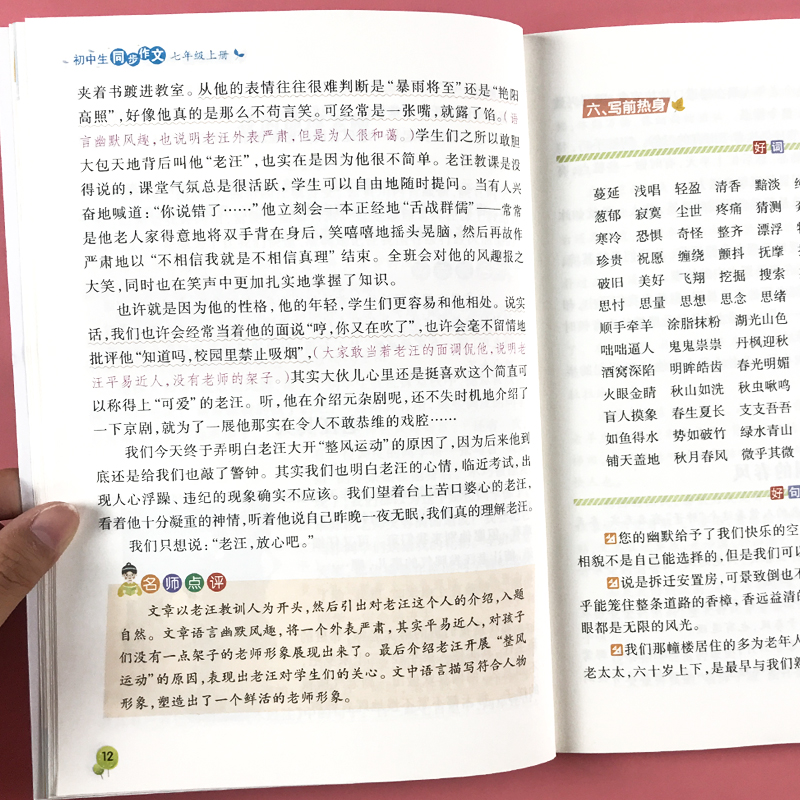 初中生同步作文 七年级上册
夹着书踱进教室。从他的表情往往很难判断是“暴雨将至”还是“艳阳
高照”，好像他真的是那么不苟言笑。可经常是一张嘴，就露了馅。（语
言幽默风趣，也说明老汪外表严肃，但是为人很和蔼。）学生们之所以敢胆
大包天地背后叫他“老汪”，也实在是因为他很不简单。老汪教课是没
得说的，课堂气氛总是很活跃，学生可以自由地随时提问。当有人兴
奋地喊道：“你说错了……”他立刻会一本正经地“舌战群儒”——常常
是他老人家得意地将双手背在身后，笑嘻嘻地摇头晃脑，然后再故作
严肃地以“不相信我就是不相信真理”结束。全班会对他的风趣报之
大笑，同时也在笑声中更加扎实地掌握了知识。
也许就是因为他的性格，他的年轻，学生们更容易和他相处。说实
话，我们也许会经常当着他的面说“哼，你又在吹了”，也许会毫不留情地
批评他“知道吗，校园里禁止吸烟”，（大家敢当着老汪的面调侃他，说明老
汪平易近人，没有老师的架子。）其实大伙儿心里还是挺喜欢这个简直可
以称得上“可爱”的老汪。听，他在介绍元杂剧呢，还不失时机地介绍了
一下京剧，就为了一展他那实在令人不敢恭维的戏腔……
我们今天终于弄明白老汪大开“整风运动”的原因了，因为后来他到
底还是给我们也敲了警钟。其实我们也明白老汪的心情，临近考试，出
现人心浮躁、违纪的现象确实不应该。我们望着台上苦口婆心的老汪，
看着他十分凝重的神情，听着他说自己昨晚一夜无眠，我们真的理解老汪。
我们只想说：“老汪，放心吧。”
名师点评
文章以老汪教训人为开头，然后引出对老汪这个人的介绍，入题
自然。文章语言幽默风趣，将一个外表严肃，其实平易近人，对孩子
们没有一点架子的老师形象展现出来了。最后介绍老汪开展“整风
运动”的原因，表现出老汪对学生们的关心。文中语言描写符合人物
形象，塑造出了一个鲜活的老师形象。
12
六、写前热身
好词
蔓延 浅唱 轻盈 清香 黯淡
葱郁 寂寞 尘世 疼痛 猜测
寒冷 恐惧 奇怪 整齐 漂浮
珍贵 祝愿 缠绕 颤抖 抚摩
破旧 美好 飞翔 挖掘 搜索
思忖 思量 思想 思念 思绪
顺手牵羊 涂脂抹粉 湖光山色
咄咄逼人 鬼鬼祟祟 丹枫迎秋
酒窝深陷 明眸皓齿 春光明媚
火眼金睛 秋山如洗 秋虫啾鸣
盲人摸象 春生夏长 支支吾吾
如鱼得水 势如破竹 绿水青山
铺天盖地 秋月春风 微乎其微
好句
您的幽默给予了我们快乐的空
相貌不是自己能选择的，但是我们可以
说是拆迁安置房，可景致倒也不
乎能笼住整条道路的香樟，香远益清的
眼都是无限的风光。
我们那幢楼居住的多为老年人
老太太，六十岁上下，是最早与我们熟